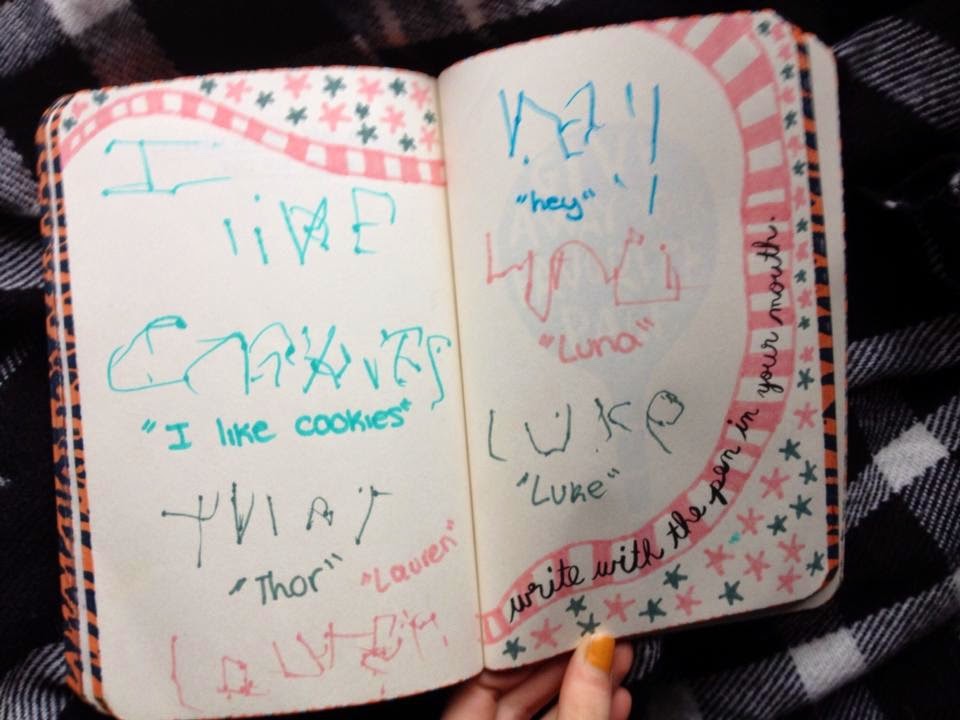 I
like
Cookies
"I like cookies"
Thor
"Thor"
"Lauren"
Lauren
hey!!
"hey"
Luna
"Luna"
Luke
"Luke"
write with the pen in your mouth.